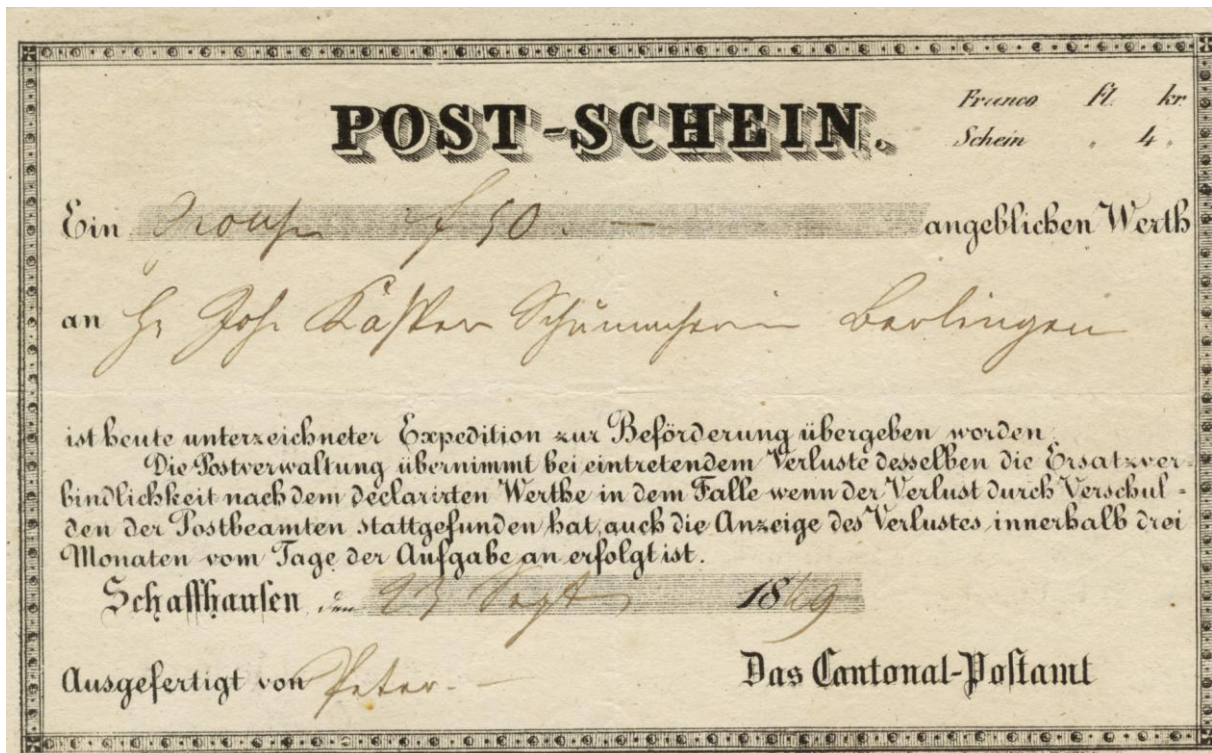 POST-SCHEIN.
Franco fl. kr
Schein „ 4 „
Ein f 50. — angeblichen Werth
an Hr Joh. Kaspar Berlingen
ist heute unterzeichneter Expedition zur Beförderung übergeben worden.
Die Postverwaltung übernimmt bei eintretendem Verluste desselben die Ersatzver-
bindlichkeit nach dem declarirten Werthe in dem Falle wenn der Verlust durch Verschul-
den der Postbeamten stattgefunden hat, auch die Anzeige des Verlustes innerhalb drei
Monaten vom Tage der Aufgabe an erfolgt ist.
Schaffhausen, den 23 Sept 1849
Ausgefertigt von Peter. —
Das Cantonal-Postamt